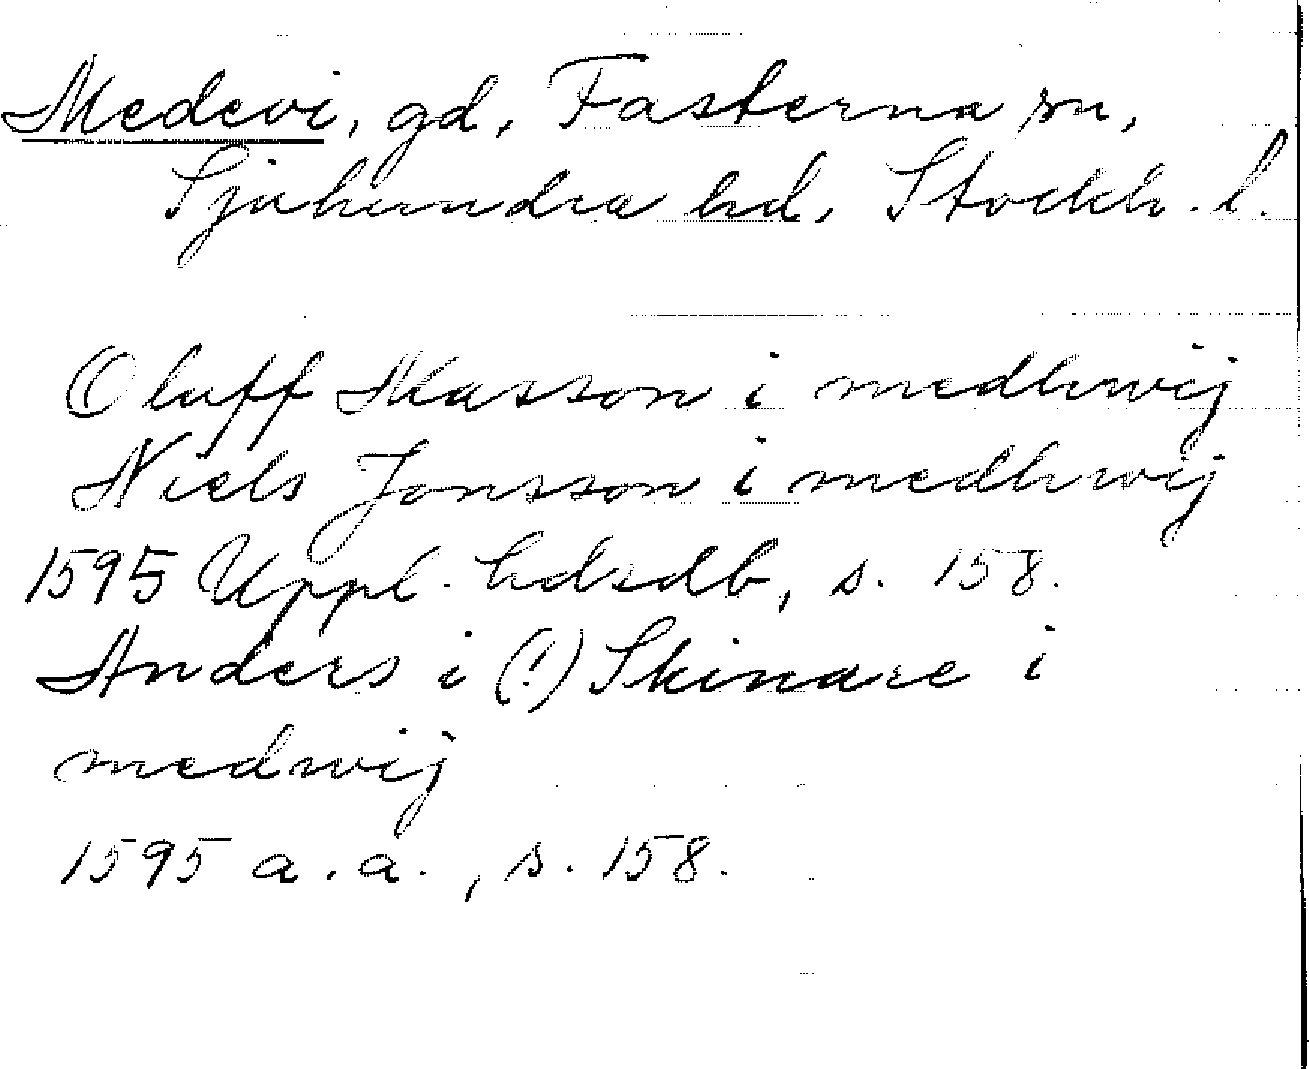 Medevi, gd, Fasterna sn,
Sjuhundra hd, Stockh. l.
Oluff Masson i medhwij
Niels Jonsson i medhwij
1595 Uppl. hdsdb, s. 158.
Anders i (!) Skinare i
medwij
1595 a.a., s. 158.